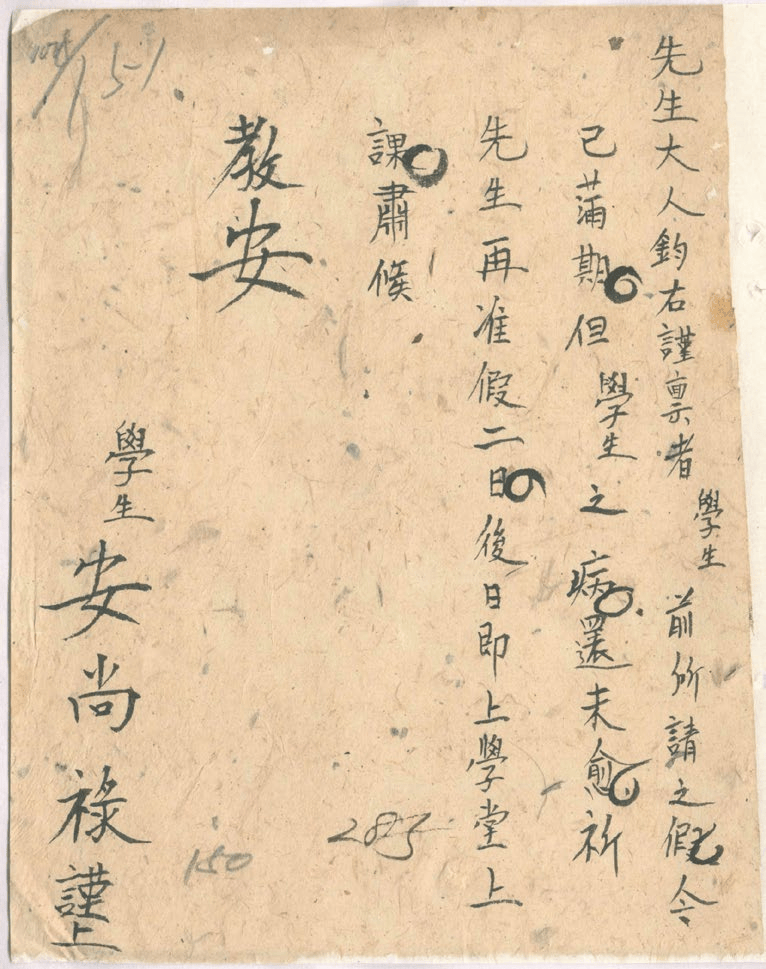 先生大人鈞右謹禀者學生前所請之假今
已滿期但學生之病還未愈祈
先生再准假二日後日即上學堂上
課肅候
教安
學生安尚祿謹上
15-1
283
150